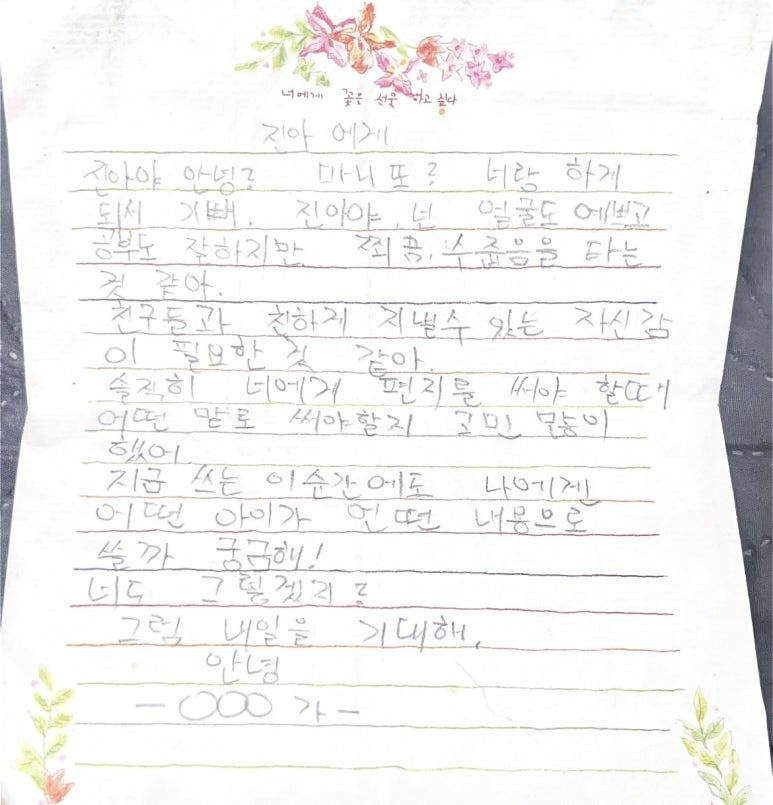 너에게 꽃은 선물 하고 싶다
진아 에게.
진아야 안녕? 마니또? 너랑 하게
되서 기뻐. 진아야, 넌 얼굴도 예쁘고
공부도 잘하지만, 쬐끔, 수줍음을 타는
것 같아.
친구들과 친하게 지낼수 있는 자신감
이 필요한 것 같아.
솔직히 너에게 편지를 써야 할때
어떤 말로 써야할지 고민 많이
했어
지금 쓰는 이순간에도 나에겐
어떤 아이가 언떤 내용으로
쓸까 궁금해!
너도 그렇겠지?
그럼 내일을 기대해,
안녕
- ○○○ 가 -